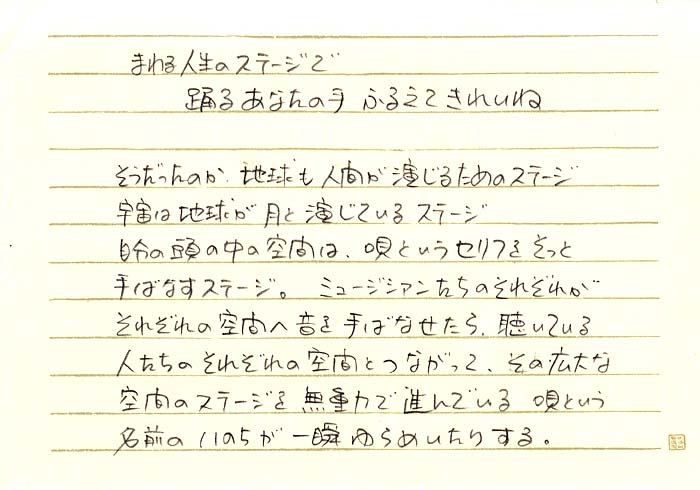 まわる人生のステージで
踊るあなたの手 ふるえてきれいね
そうだったのか、地球も人間が演じるためのステージ
宇宙は地球が月と演じているステージ
自分の頭の中の空間は、唄というセリフをそっと
手ばなすステージ。 ミュージシャンたちのそれぞれが
それぞれの空間へ音を手ばなせたら、聴いている
人たちのそれぞれの空間とつながって、その広大な
空間のステージを無重力で進んでいる 唄という
名前のいのちが一瞬ゆらめいたりする。